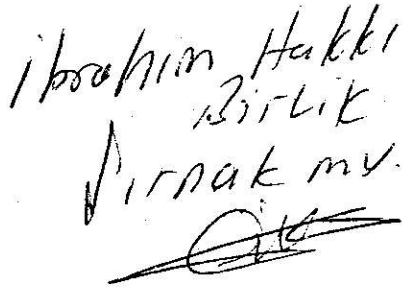 İbrahim Hakkı
Birlik
Şırnak mv.